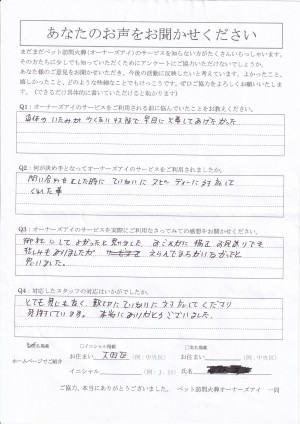 あなたのお声をお聞かせください
まだまだペット訪問火葬(オーナーズアイ)のサービスを知らない方がたくさんいらっしゃいます。
その方たちに少しでも知っていただくためにアンケートにご協力いただけないでしょうか。
あなた様のご意見をお聞かせいただき、今後の活動に反映したいと考えています。よかったこと、
嬉しかったこと、どのような些細なことでもかまいませんので、ぜひご協力をよろしくお願いいたします。
(できるだけ具体的に書いていただけると助かります)
Q1:オーナーズアイのサービスをご利用される前に悩んでいたことをお教えください。
遺体のいたみが 早目に火葬してあげたかった
Q2:何が決め手となってオーナーズアイのサービスをご利用されましたか。
問い合わせをした時に ていねいに スピーディーに対応して
くれた事
Q3:オーナーズアイのサービスを実際にご利用なさってみての感想をお聞かせください。
御社にして よかったと思いました
悲しみもありましたが えらんでまちがいなかったと
思いました。
Q4:対応したスタッフの対応はいかがでしたか。
とても 親切に ていねいに 対応して くださり
感謝しています。 本当にありがとうございました。
ホームページでご紹介
□イニシャル掲載
お住まい 大田区 (例:中央区)
お住まい (例:中央区)
イニシャル (例:J.H)
氏名
ご協力、本当にありがとうございました。 ペット訪問火葬オーナーズアイ 一同